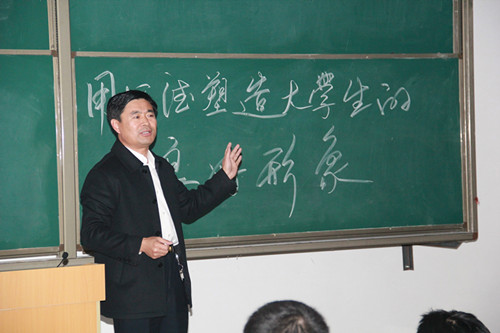 用德塑造大學生的
形象